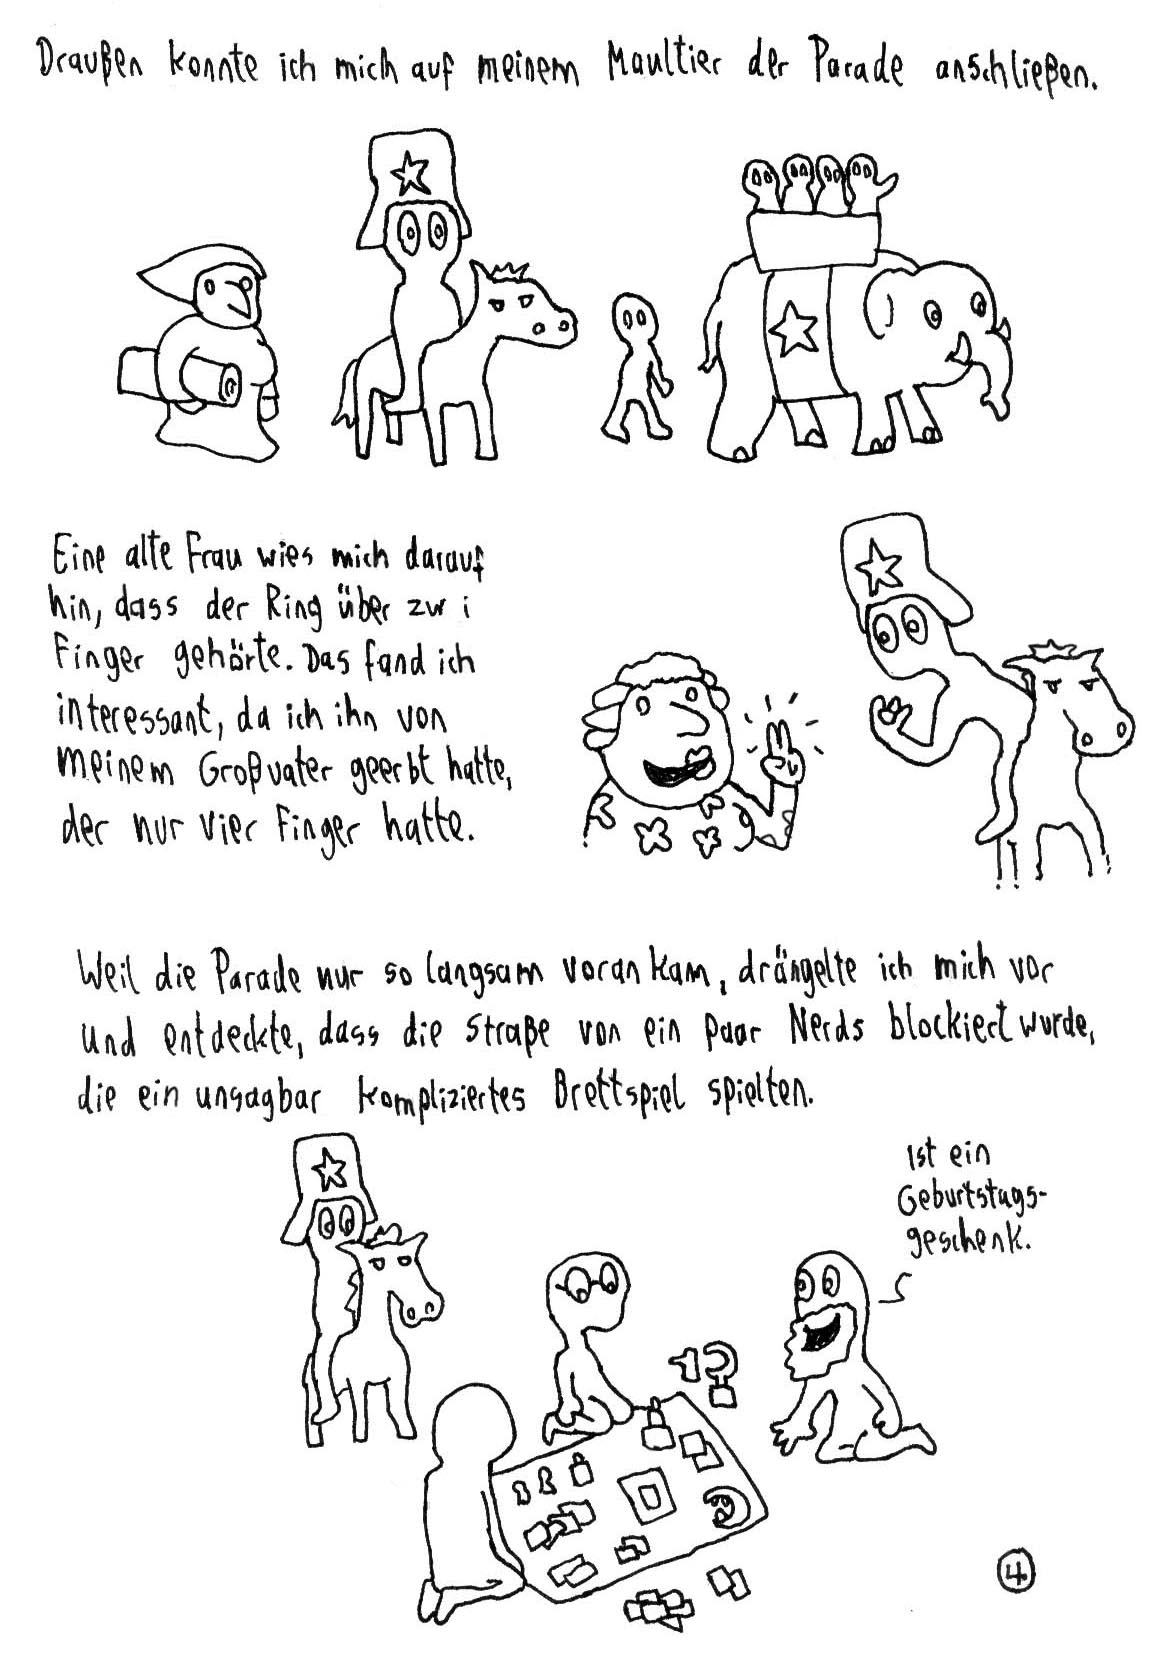 Draußen konnte ich mich auf meinem Maultier der Parade anschließen.
Eine alte Frau wies mich darauf
hin, dass der Ring über zw i
Finger gehörte. Das fand ich
interessant, da ich ihn von
meinem Großvater geerbt hatte,
der nur vier Finger hatte.
Weil die Parade nur so langsam voran kam, drängelte ich mich vor
und entdeckte, dass die Straße von ein paar Nerds blockiert wurde,
die ein unsagbar kompliziertes Brettspiel spielten.
Ist ein
Geburtstags-
geschenk.
4